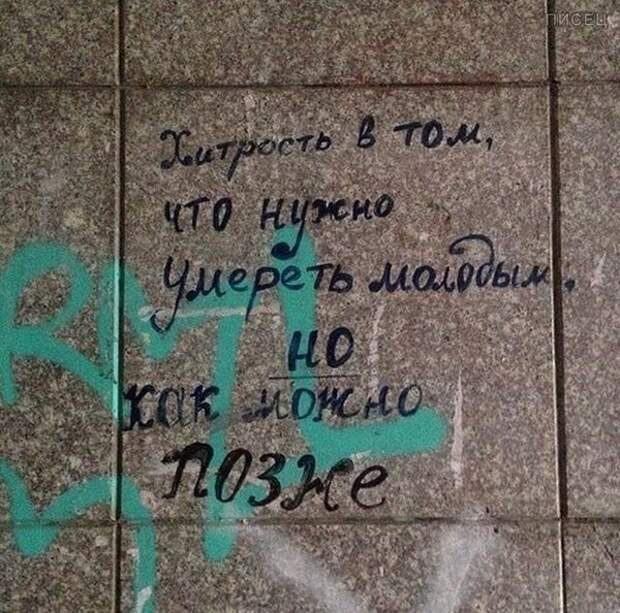 ПИСЕЦ
Хитрость в том,
что нужно
умереть молодым.
но
как можно
позже